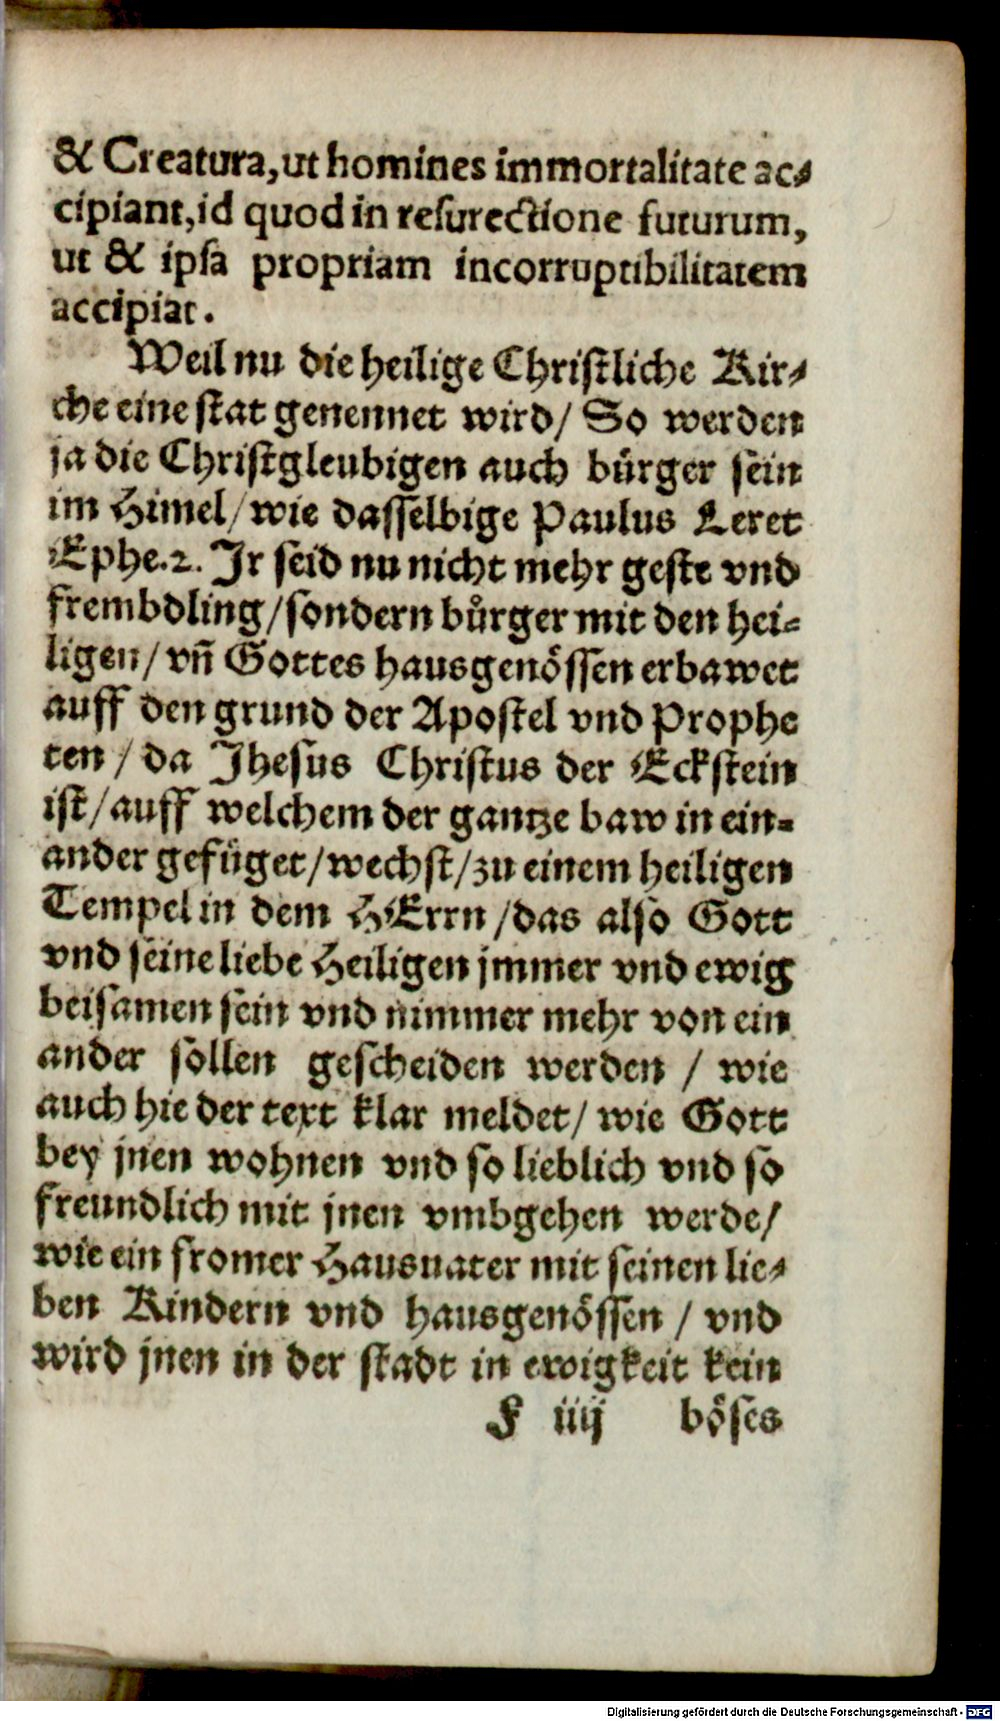 & Creatura, ut homines immortalitate ac⸗
cipiant, id quod in resurectione futurum,
ut & ipsa propriam incorruptibilitatem
accipiat.
Weil nu die heilige Christliche Kir⸗
che eine stat genennet wird / So werden
ja die Christgleubigen auch bürger sein
im Himel / wie dasselbige Paulus Leret
Ephe. 2. Jr seid nu nicht mehr geste vnd
frembdling / sondern bůrger mit den hei⸗
ligen / vñ Gottes hausgenössen erbawet
auff den grund der Apostel vnd Prophe
ten / da Jhesus Christus der Eckstein
ist / auff welchem der gantze baw in ein⸗
ander gefüget / wechst / zu einem heiligen
Tempel in dem HErrn / das also Gott
vnd seine liebe Heiligen jmmer vnd ewig
beisamen sein vnd nimmer mehr von ein
ander sollen gescheiden werden / wie
auch hie der text klar meldet / wie Gott
bey jnen wohnen vnd so lieblich vnd so
freundlich mit jnen vmbgehen werde /
wie ein fromer Hausuater mit seinen lie⸗
ben Kindern vnd hausgenössen / vnd
wird jnen in der stadt in ewigkeit kein
F iiij böses
Digitalisierung gefördert durch die Deutsche Forschungsgemeinschaft - DFG